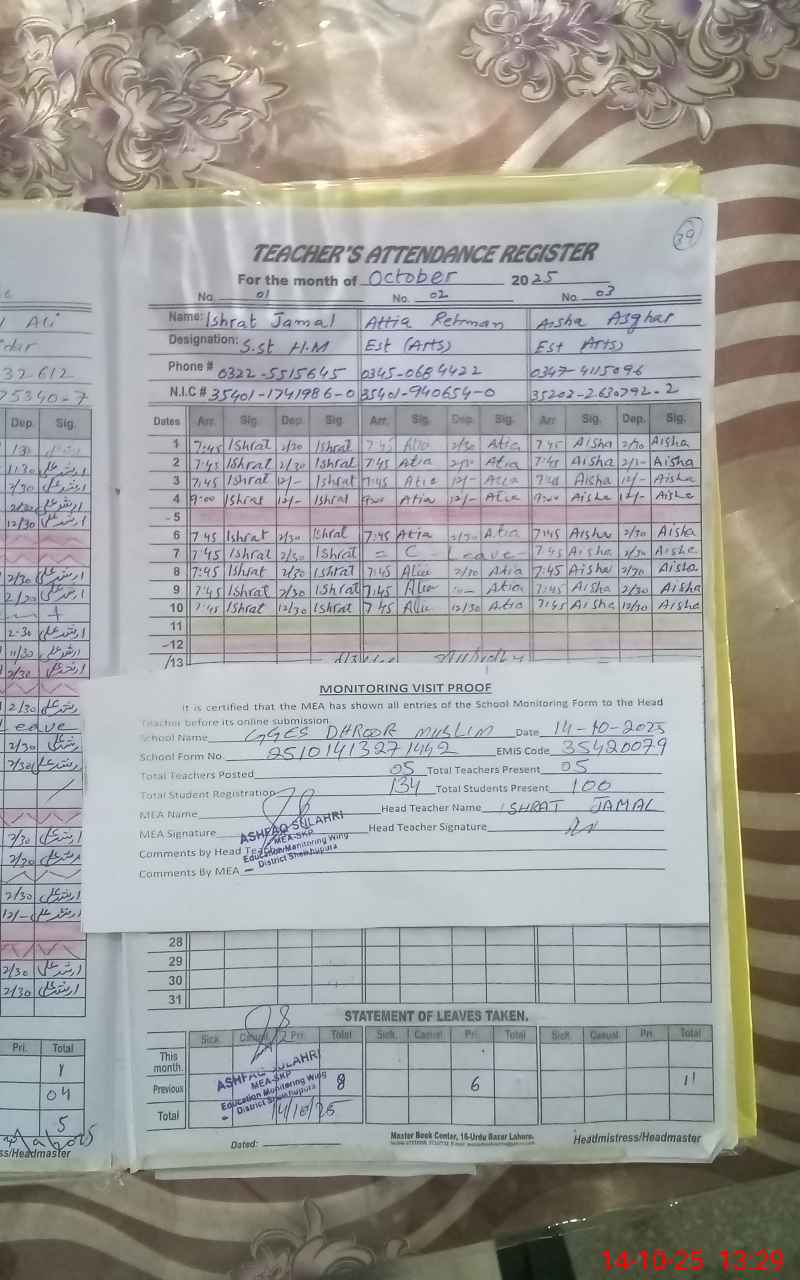 39
TEACHER'S ATTENDANCE REGISTER
For the month of October 2025
No. 01 No. 02 No. 03
Name: Ishrat Jamal Attia Rehman Aisha Asghar
Designation: S.st H.M Est (Arts) Est Arts)
Phone # 0322-5515645 0345-0684422 0347-4115096
N.I.C # 35401-1741986-0 35401-940654-0 35202-2630792-2
Dates Arr. Sig. Dep. Sig. Arr. Sig. Dep. Sig. Arr Sig. Dep. Sig.
1 7:45 Ishrat 2/30 Ishrat 7:45 Atia 2/30 Atia 7:45 Aisha 2/30 Aisha
2 7:45 Ishrat 2/30 Ishrat 7:45 Atia 2/30 Atia 7:45 Aisha Aisha
3 7:45 Ishrat 12/- Ishrat 7:45 Atia 12/- Atia 7:45 Aisha 12/- Aisha
4 9:00 Ishrat 12/- Ishrat 9:00 Atia 12/- Atia 9:00 Aisha 12/- Aisha
-5
6 7:45 Ishrat 2/30 Ishrat 7:45 Atia 2/30 Atia 7:45 Aisha 2/30 Aisha
7 7:45 Ishrat 2/30 Ishrat = C - Leave - 7:45 Aisha 2/30 Aisha
8 7:45 Ishrat 2/30 Ishrat 7:45 Atia 2/30 Atia 7:45 Aisha 2/30 Aisha
9 7:45 Ishrat 2/30 Ishrat 7:45 Atia Atia 7:45 Aisha 2/30 Aisha
10 7:45 Ishrat 12/30 Ishrat 7:45 Atia 12/30 Atia 7:45 Aisha 12/30 Aisha
11
-12
/13
MONITORING VISIT PROOF
It is certified that the MEA has shown all entries of the School Monitoring Form to the Head
Teacher before its online submission.
School Name GGES DHROOR MUSLIM Date 14-10-2025
School Form No. 25101413271442 EMIS Code 35420079
Total Teachers Posted 05 Total Teachers Present 05
Total Student Registration 134 Total Students Present 100
MEA Name Head Teacher Name ISHRAT JAMAL
MEA Signature Head Teacher Signature
ASHFAQ SULAHRI
MEA-SKP
Education Monitoring Wing
District Sheikhupura
Comments by Head Teacher
Comments By MEA
28
29
30
31
STATEMENT OF LEAVES TAKEN.
Sick Casual Pri. Total Sick. Casual Pri. Total Sick. Casual. Pri. Total
This month.
Previous 8 6 11
Total
ASHFAQ SULAHRI
MEA-SKP
Education Monitoring Wing
District Sheikhupura
14/10/25
Dated:
Master Book Center, 16-Urdu Bazar Lahore.
Headmistress/Headmaster
Ali
32612
75340-7
Dep. Sig.
Leave
Pri. Total
1
04
5
ss/Headmaster
14-10-25 13:29